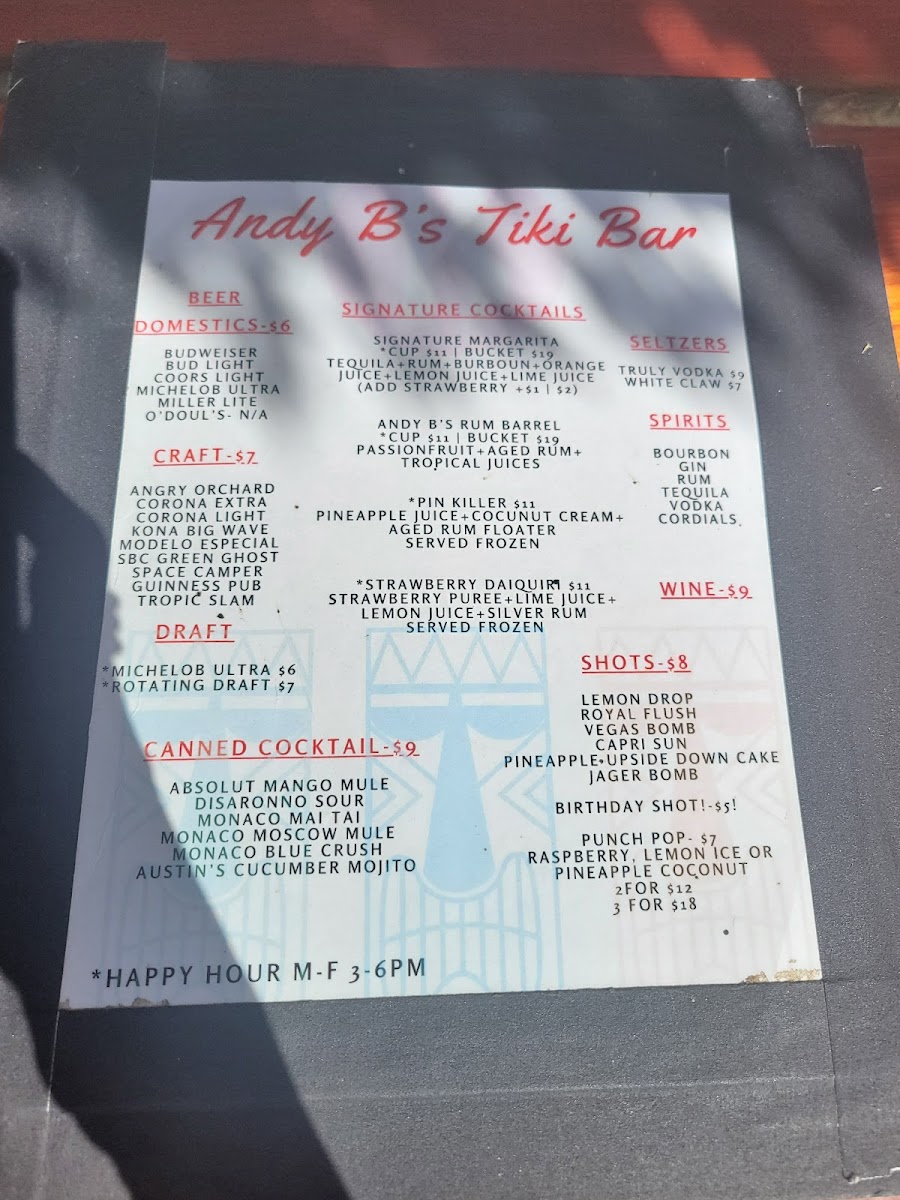 Andy B's Tiki Bar
BEER
DOMESTICS-$6
BUDWEISER
BUD LIGHT
COORS LIGHT
MICHELOB ULTRA
MILLER LITE
O'DOUL'S- N/A
CRAFT-$7
ANGRY ORCHARD
CORONA EXTRA
CORONA LIGHT
KONA BIG WAVE
MODELO ESPECIAL
SBC GREEN GHOST
SPACE CAMPER
GUINNESS PUB
TROPIC SLAM
DRAFT
*MICHELOB ULTRA $6
*ROTATING DRAFT $7
CANNED COCKTAIL-$9
ABSOLUT MANGO MULE
DISARONNO SOUR
MONACO MAI TAI
MONACO MOSCOW MULE
MONACO BLUE CRUSH
AUSTIN'S CUCUMBER MOJITO
*HAPPY HOUR M-F 3-6PM
SIGNATURE COCKTAILS
SIGNATURE MARGARITA
*CUP $11 | BUCKET $19
TEQUILA+RUM+BURBOUN+ORANGE
JUICE+LEMON JUICE+LIME JUICE
(ADD STRAWBERRY +$1 | $2)
ANDY B'S RUM BARREL
*CUP $11 | BUCKET $19
PASSIONFRUIT+AGED RUM+
TROPICAL JUICES
*PIN KILLER $11
PINEAPPLE JUICE+COCUNUT CREAM+
AGED RUM FLOATER
SERVED FROZEN
*STRAWBERRY DAIQUIRI $11
STRAWBERRY PUREE+LIME JUICE+
LEMON JUICE+SILVER RUM
SERVED FROZEN
SELTZERS
TRULY VODKA $9
WHITE CLAW $7
SPIRITS
BOURBON
GIN
RUM
TEQUILA
VODKA
CORDIALS
WINE-$9
SHOTS-$8
LEMON DROP
ROYAL FLUSH
VEGAS BOMB
CAPRI SUN
PINEAPPLE UPSIDE DOWN CAKE
JAGER BOMB
BIRTHDAY SHOT!-$5!
PUNCH POP- $7
RASPBERRY, LEMON ICE OR
PINEAPPLE COCONUT
2FOR $12
3 FOR $18